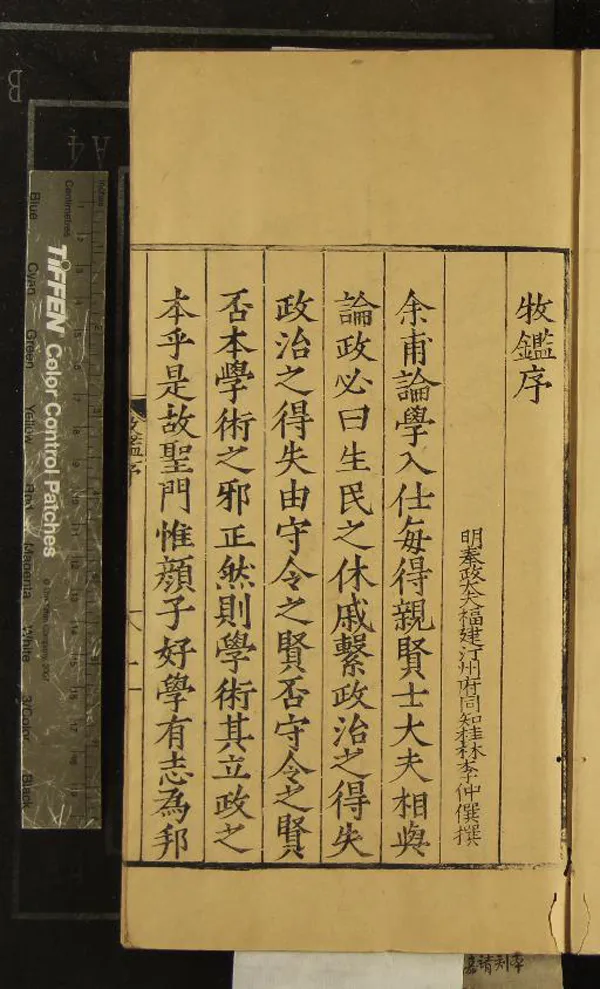 牧鑑序
明奉政大夫福建汀州府同知桂林李仲僎撰
余甫論學入仕每得親賢士大夫相與
論政必曰生民之休戚繫政治之得失
政治之得失由守令之賢否守令之賢
否本學術之邪正然則學術其立政之
本乎是故聖門惟顏子好學有志為邦
牧鑑序
TIFFEN Color Control Patches
Inches
Centimetres
Blue
Cyan
Green
Yellow
Red
Magenta
White
3/Color
Black
A4
B